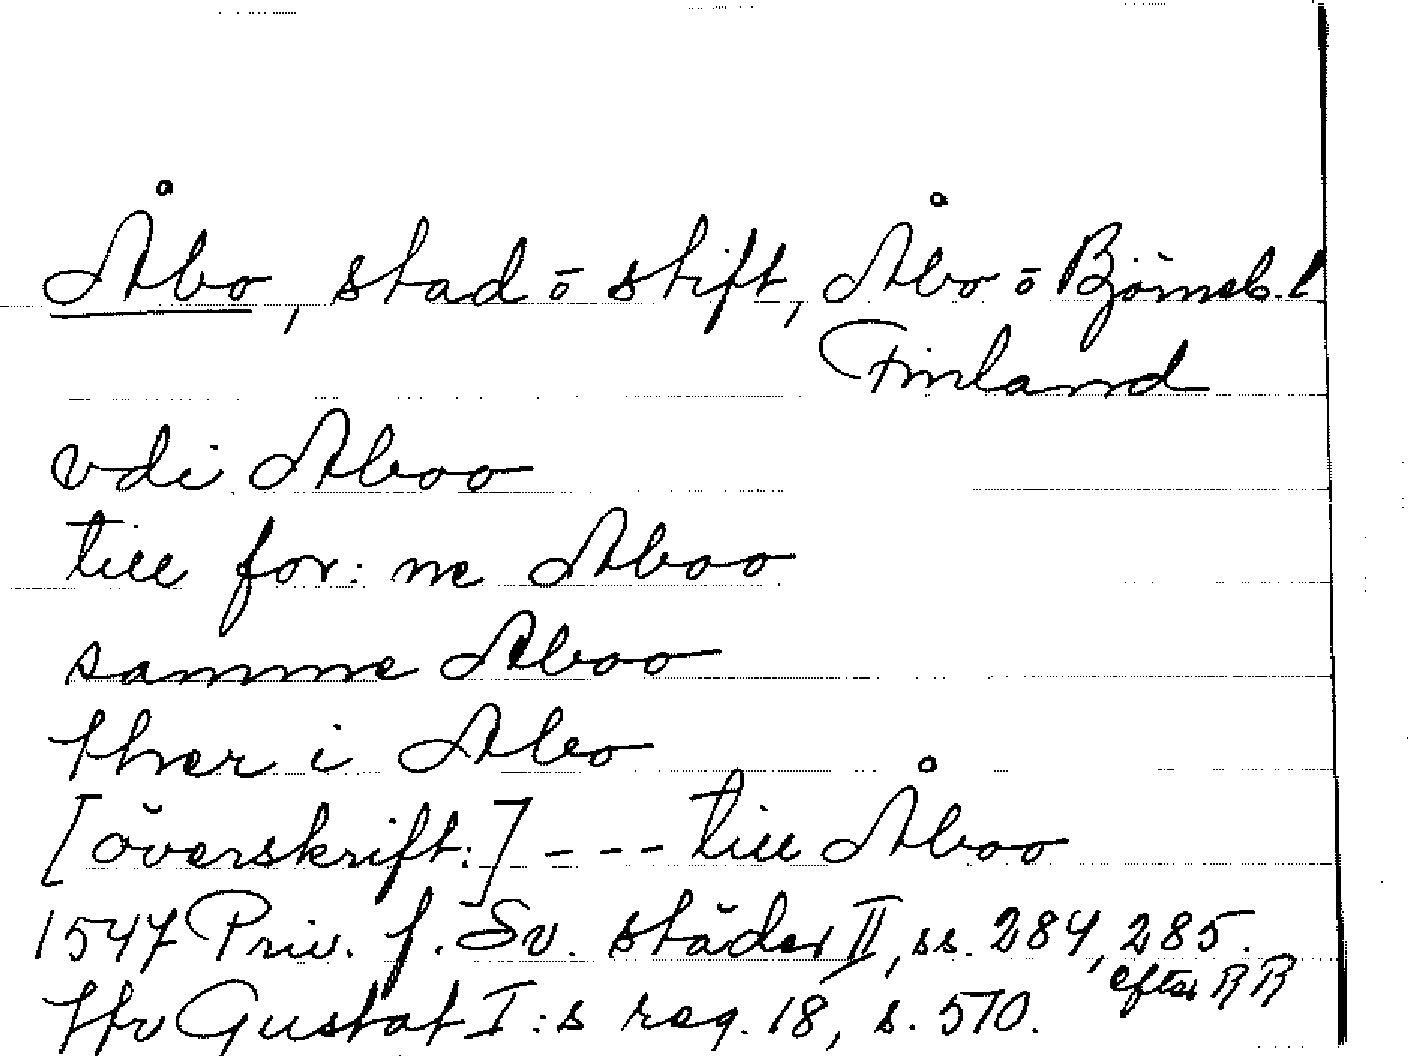 Åbo, stad ō stift, Åbo ō Björneb. l
Finland
vdi Aboo
till for: ne Aboo
samme Aboo
thver i Abo
[överskrift:] - - - till Åboo
1547 Priv. f. Sv. städer II, ss. 284, 285.
efter RR
Jfr Gustaf I:s reg. 18, s. 570.